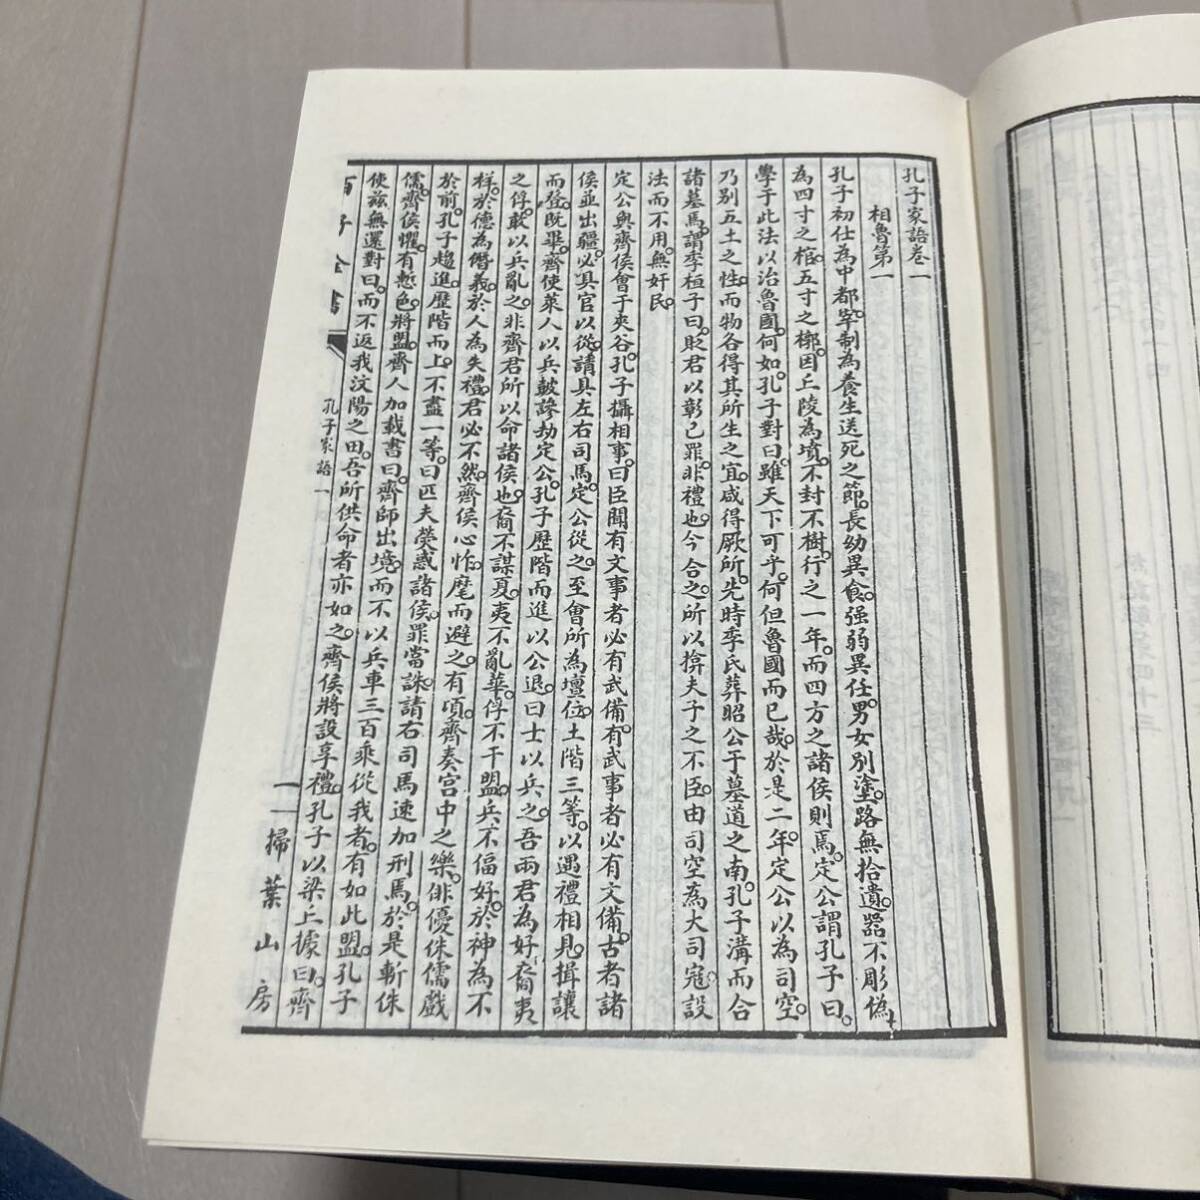 孔子家語卷一
相魯第一
孔子初仕為中都宰。制為養生送死之節。長幼異食。强弱異任。男女別塗。路無拾遺。器不彫偽。
為四寸之棺。五寸之槨。因丘陵為墳。不封不樹。行之一年。而四方之諸侯則焉。定公謂孔子曰。
學子此法以治魯國。何如。孔子對曰。雖天下可乎。何但魯國而已哉。於是二年。定公以為司空。
乃別五土之性。而物各得其所生之宜。咸得厥所。先時季氏葬昭公于墓道之南。孔子溝而合
諸墓焉。謂季桓子曰。貶君以彰己罪。非禮也。今合之。所以揜夫子之不臣。由司空為大司寇。設
法而不用。無奸民。
定公與齊侯會于夾谷。孔子攝相事。曰臣聞有文事者必有武備。有武事者必有文備。古者諸
侯並出疆。必具官以從。請具左右司馬。定公從之。至會所為壇位。土階三等。以遇禮相見。揖讓
而登。既畢。齊使萊人以兵鼓謲劫定公。孔子歷階而進以公退。曰士以兵之。吾兩君為好。裔夷
之俘。敢以兵亂之。非齊君所以命諸侯也。裔不謀夏。夷不亂華。俘不干盟。兵不偪好。於神為不
祥。於德為愆義。於人為失禮。君必不然。齊侯心怍。麾而避之。有頃。齊奏宮中之樂。俳優侏儒戲
於前。孔子趨進。歷階而上。不盡一等。曰匹夫熒惑諸侯。罪當誅。請右司馬速加刑焉。於是斬侏
儒。齊侯懼。有慙色。將盟。齊人加載書曰。齊師出境。而不以兵車三百乘從我者。有如此盟。孔子
使茲無還對曰。而不返我汶陽之田。吾所供命者亦如之。齊侯將設享禮。孔子以梁丘據曰。齊
百子全書
孔子家語一
一
掃葉山房